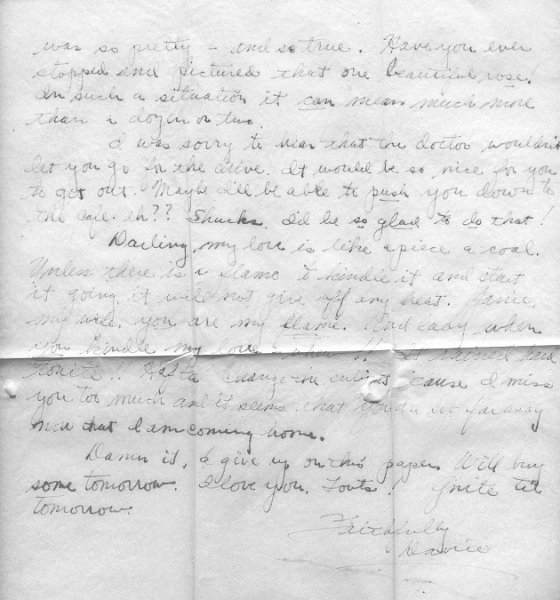 was so pretty - and so true. Have you ever
stopped and pictured that one beautiful rose!
In such a situation it can mean much more
than a dozen or two.
I was sorry to hear that the doctor wouldn't
let you go for the drive. It would be so nice for you
to get out. Maybe I'll be able to push you down to
the cafe. Eh?? Shucks, I'd be so glad to do that!
Darling, my love is like a piece a coal.
Unless there is a flame to kindle it and start
it going it will not give off any heat. Janie,
my wife, you are my flame. And baby when
you kindle my love - !! It's
tonite!! Hafta change the subject 'cause I miss
you too much and it seems that you're so far away
now that I am coming home.
Damn it, I give up on this paper. Will buy
some tomorrow. I love you, Toots! G'nite til
tomorrow.
Faithfully